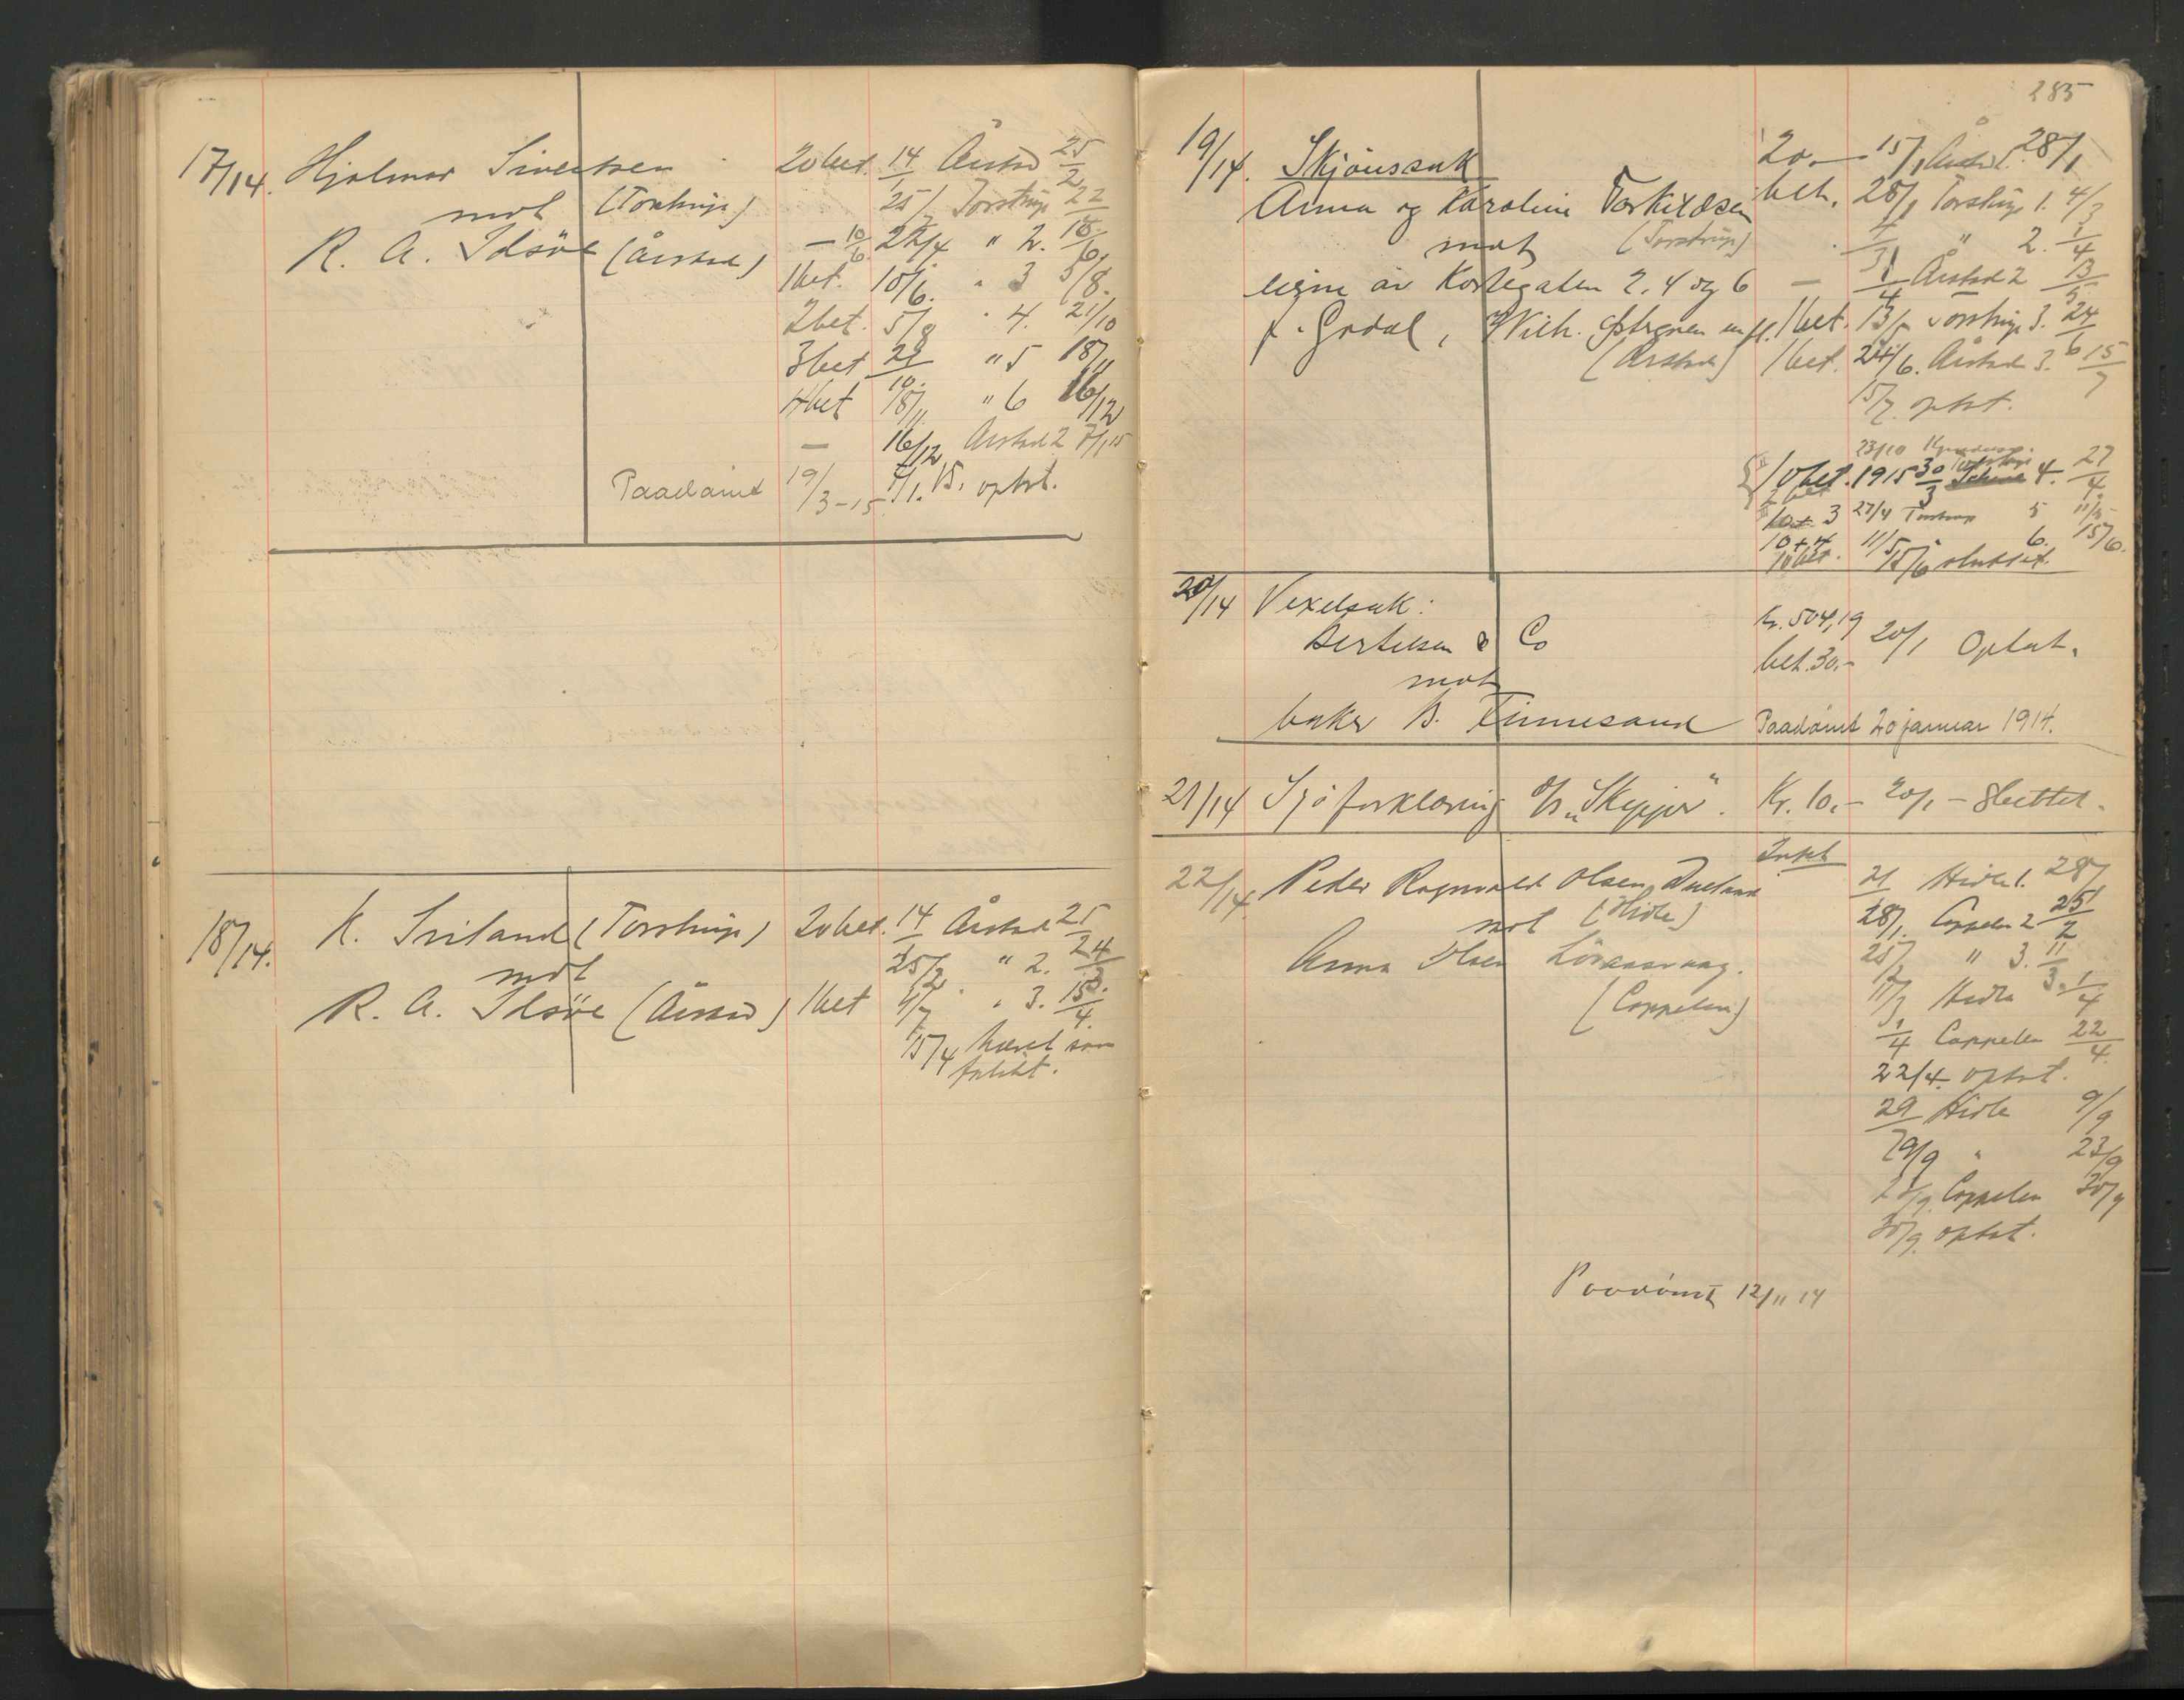 17/14. Hjalmar Sivertsen 20 bet. 14/1 Årstad 25/2
mot (Torstrup) 25/2 Torstrup 22/4
R. A. Idsöe (Årstad) — 10/6 22/4 " 2. 10/6.
1 bet. 10/6. " 3 5/8.
2 bet. 5/8 " 4. 21/10
3 bet 21/10. " 5 18/11
4 bet 18/11 " 6 16/12
— 16/12 Årstad 2 7/1 15
Paadömt 19/3-15 7/1. 15. optat.
18/14. K. Sviland (Torstrup) 20 bet. 14/1 Årstad 25/2
mot 25/2 " 2. 24/3.
R. A. Idsöe (Årstad) 1 bet " 3. 15/4.
15/4 hævet som
forlikt.
285
19/14. Skjönssak 20.— 15/1 Årstad 1. 28/1
Anna og Karoline Torkildsen bet. 28/1 Torstrup 1. 4/3
mot (Torstrup) 4/3 " 2. 1/4
eierne av Kortegaten 2. 4 og 6 — 1/4 Årstad 2 13/5
Wilh. m fl. 1 bet. 13/5 Torstrup 3. 24/6
(Årstad) 1 bet. 24/6. Årstad 3. 15/7
15/7. optat.
23/10
10 bet. 1915 30/3 Torstrup 4. 27/4.
2 bet
10 + 3 27/4 Torstrup 5 11/5
10 + 4 11/5 " 6. 15/6.
10 bet. 15/6 sluttet.
20/14 Vexelsak: kr. 504,19
Bertelsen & Co bet. 30.- 20/1 Optat.
mot
baker B. Finnesand Paadömt 20 januar 1914.
21/14 Sjöforklaring D/S „Skipper". Kr. 10.- 20/1 - sluttet.
22/14. Peder Ragnvald Olsen 21/1 Hidle 1. 28/1
mot (Hidle) 28/1. Coppelen 2 25/2
Anna Olsen 25/2 " 3. 11/3.
(Coppelen) 11/3 Hidle 1/4
1/4 Coppelen 22/4.
22/4. optat.
29/7 Hidle 9/9
9/9 " 23/9
23/9. Coppelen 30/9
30/9. optat.
Paadömt 12/11 14